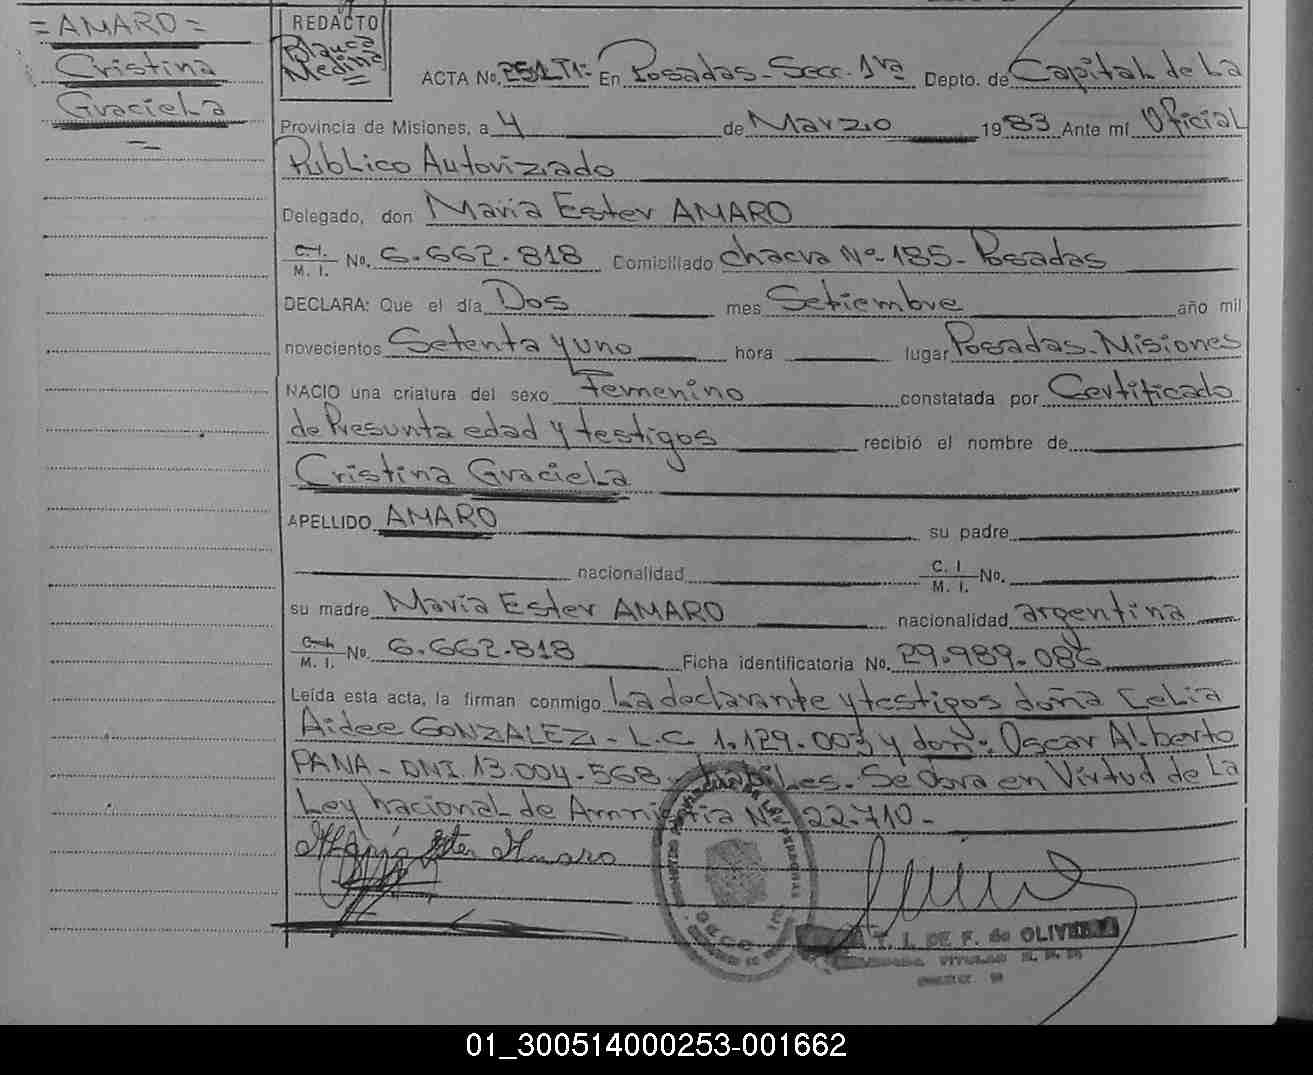 = AMARO =
Cristina
Graciela
REDACTO
Blanca
Medina
ACTA No. 251 T1: En Posadas - Secc. 1ra Depto. de Capital de La
Provincia de Misiones, a 4 de Marzo 1983 Ante mí Oficial
Publico Autoriziado
Delegado, don María Ester AMARO
C. I.
M. I. No. 6.662.818 Domiciliado chacra Nº 185 - Posadas
DECLARA: Que el día Dos mes Setiembre año mil
novecientos Setenta y uno hora lugar Posadas - Misiones
NACIO una criatura del sexo Femenino constatada por Certificado
de Presunta edad y testigos recibió el nombre de
Cristina Graciela
APELLIDO AMARO su padre
nacionalidad C. I.
M. I. No.
su madre María Ester AMARO nacionalidad argentina
M. I. No. 6.662.818 Ficha identificatoria No. 29.989.086
Leída esta acta, la firman conmigo La declarante y testigos doña Celia
Aidee GONZALEZ - L.C. 1.129.003 y don: Oscar Alberto
PANA - DNI. 13.004.568 - habiles. Se obra en Virtud de La
Ley nacional de Amnistia Nº 22.710 -
María Ester Amaro
T. I. DE F. de OLIVEIRA
TITULAR
01_300514000253-001662